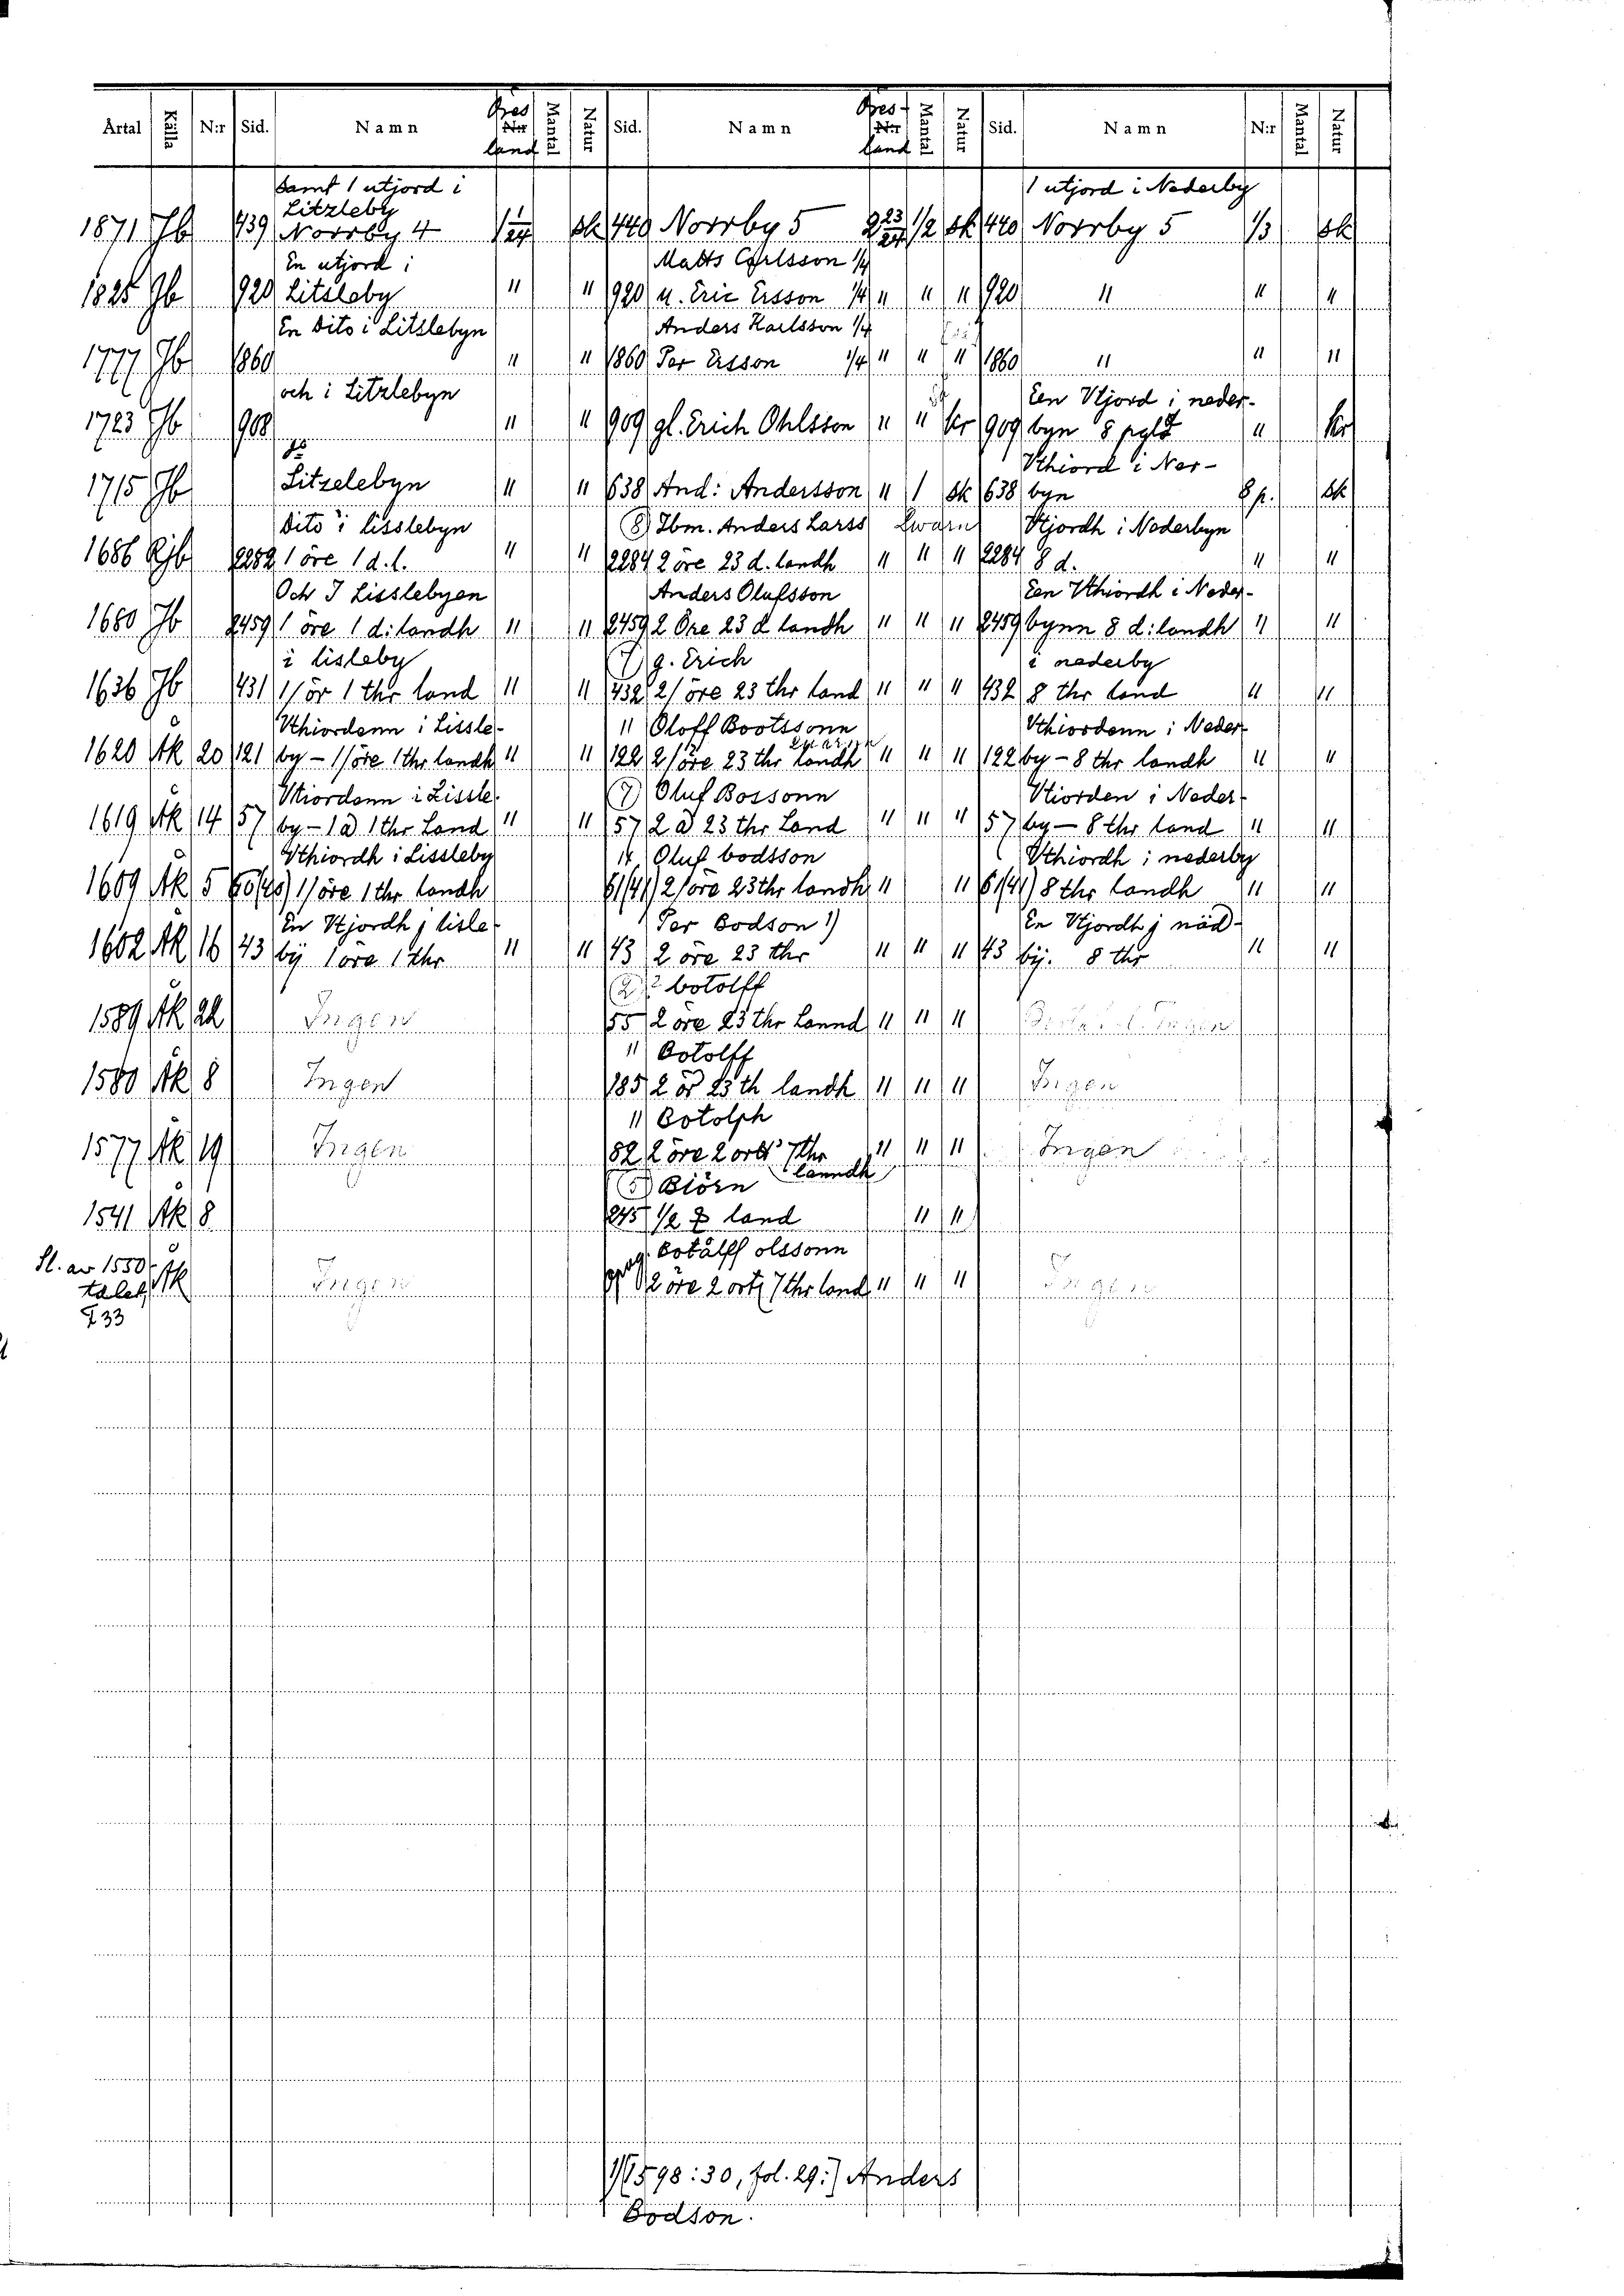 Årtal Källa N:r Sid. Namn Öres land Mantal Natur Sid. Namn Öres land Mantal Natur Sid. Namn N:r Mantal Natur
Samt 1 utjord i
Litzleby
1 utjord i Nederby
1871 Jb 439 Norrby 4 1 1/24 sk 440 Norrby 5 2 23/24 1/2 sk 440 Norrby 5 1/3 sk
En utjord i
Matts Carlsson 1/4
1825 Jb 920 Litsleby " " 920 u. Eric Ersson 1/4 " " " 920 " " "
En dito i Litslebyn
Anders Karlsson 1/4
1777 Jb 1860 " " 1860 Per Ersson 1/4 " " " 1860 " " "
och i Litzlebyn
Een Utjord i neder-
1723 Jb 908 " " 909 gl. Erich Ohlsson " " kr 909 byn 8 " kr
Uthiord i Ner-
1715 Jb Litzelebyn " " 638 And: Andersson " 1 sk 638 byn 8 p. sk
Dito i lisslebyn
(8) Ibm. Anders Larss Qwarn
Utjordh i Nederbyn
1686 Rjb 2282 1 öre 1 d. l. " " 2284 2 öre 23 d. landh " " " 2284 8 d. " "
Och I Lisslebyen
Anders Olufsson
Een Uthiordh i Neder-
1680 Jb 2459 1 öre 1 d: landh " " 2459 2 Öre 23 d landh " " " 2459 bynn 8 d: landh " "
i lisleby
(7) g. Erich
i nederby
1636 Jb 431 1/ ör 1 thr land " " 432 2/ öre 23 thr land " " " 432 8 thr land " "
Uthiordenn i Lissle-
" Oloff Bootssonn
Uthiordenn i Neder-
1620 Åk 20 121 by - 1/ öre 1 thr landh " " 122 2/ öre 23 thr landh " " " 122 by - 8 thr landh " "
Utiordenn i Lissle-
(7) Oluf Bossonn
Utiorden i Neder-
1619 Åk 14 57 by - 1 1 thr Land " " 57 2 23 thr Land " " " 57 by - 8 thr land " "
Uthiordh i Lissleby
14 Oluf bodsson
Uthiordh i nederby
1609 Åk 5 60(40) 1/ öre 1 thr landh 61(41) 2/ öre 23 thr landh " " 61(41) 8 thr landh " "
En Utjordh j lisle-
Per Bodson 1)
En Utjordh j näd-
1602 Åk 16 43 bÿ 1 öre 1 thr " " 43 2 öre 23 thr " " " 43 bÿ. 8 thr " "
(2) botolff
1589 Åk 22 Ingen 55 2 öre 23 thr Lannd " " " Ingen
" Botolff
1580 Åk 8 Ingen 185 2 ör 23 th landh " " " Ingen
" Botolph
1577 Åk 19 Ingen 82 2 öre 2 7 thr " " " Ingen
lanndh
(5) Biörn
1541 Åk 8 245 1/2 land " "
Sl. av 1550- Botålff olssonn
talet Åk Ingen 2 öre 2 7 thr land " " " Ingen
F 33
1) (1598:30, fol. 29:) Anders
Bodson.